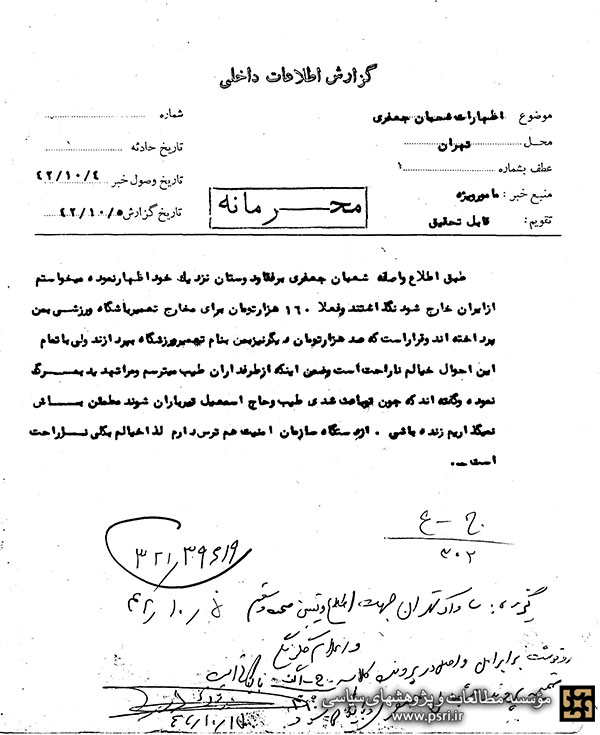 گزارش اطلاعات داخلی
موضوع اظهارات شعبان جعفری
محل تهران
عطف بشماره
منبع خبر : مامور ویژه
تقویم : قابل تحقیق
شماره
تاریخ حادثه
تاریخ وصول خبر ۴۲/۱۰/۴
تاریخ گزارش ۴۲/۱۰/۵
محرمانه
طبق اطلاع واصله شعبان جعفری برفقا و دوستان نزدیك خود اظهار نموده میخواستم
از ایران خارج شوم نگذاشتند و فعلا ۱۶۰ هزار تومان برای مخارج تعمیر باشگاه ورزشی بمن
پرداخته اند و قرار است که صد هزار تومان دیگر نیز بمن بنام تعمیر ورزشگاه بپردازند ولی با تمام
این احوال خیالم ناراحت است و ضمن اینکه از طرفداران طیب میترسم و مرا تهدید بمرگ
نموده و گفته اند که چون تو باعث شدی طیب و حاج اسمعیل تیرباران شوند مطمئن باش
نمیگذاریم زنده باشی . از دستگاه سازمان امنیت هم ترس دارم لذا خیالم بکلی ناراحت
است ...
ج - ع
۳۰۲
۳۲۱
گیرنده : ساواک تهران جهت اطلاع و تعیین صحت و سقم
۴۲/۱۰/۸
رونوشت برابر اصل و اصل در پرونده کلاسه
مؤسسه مطالعات و پژوهشهای سیاسی
www.psri.ir